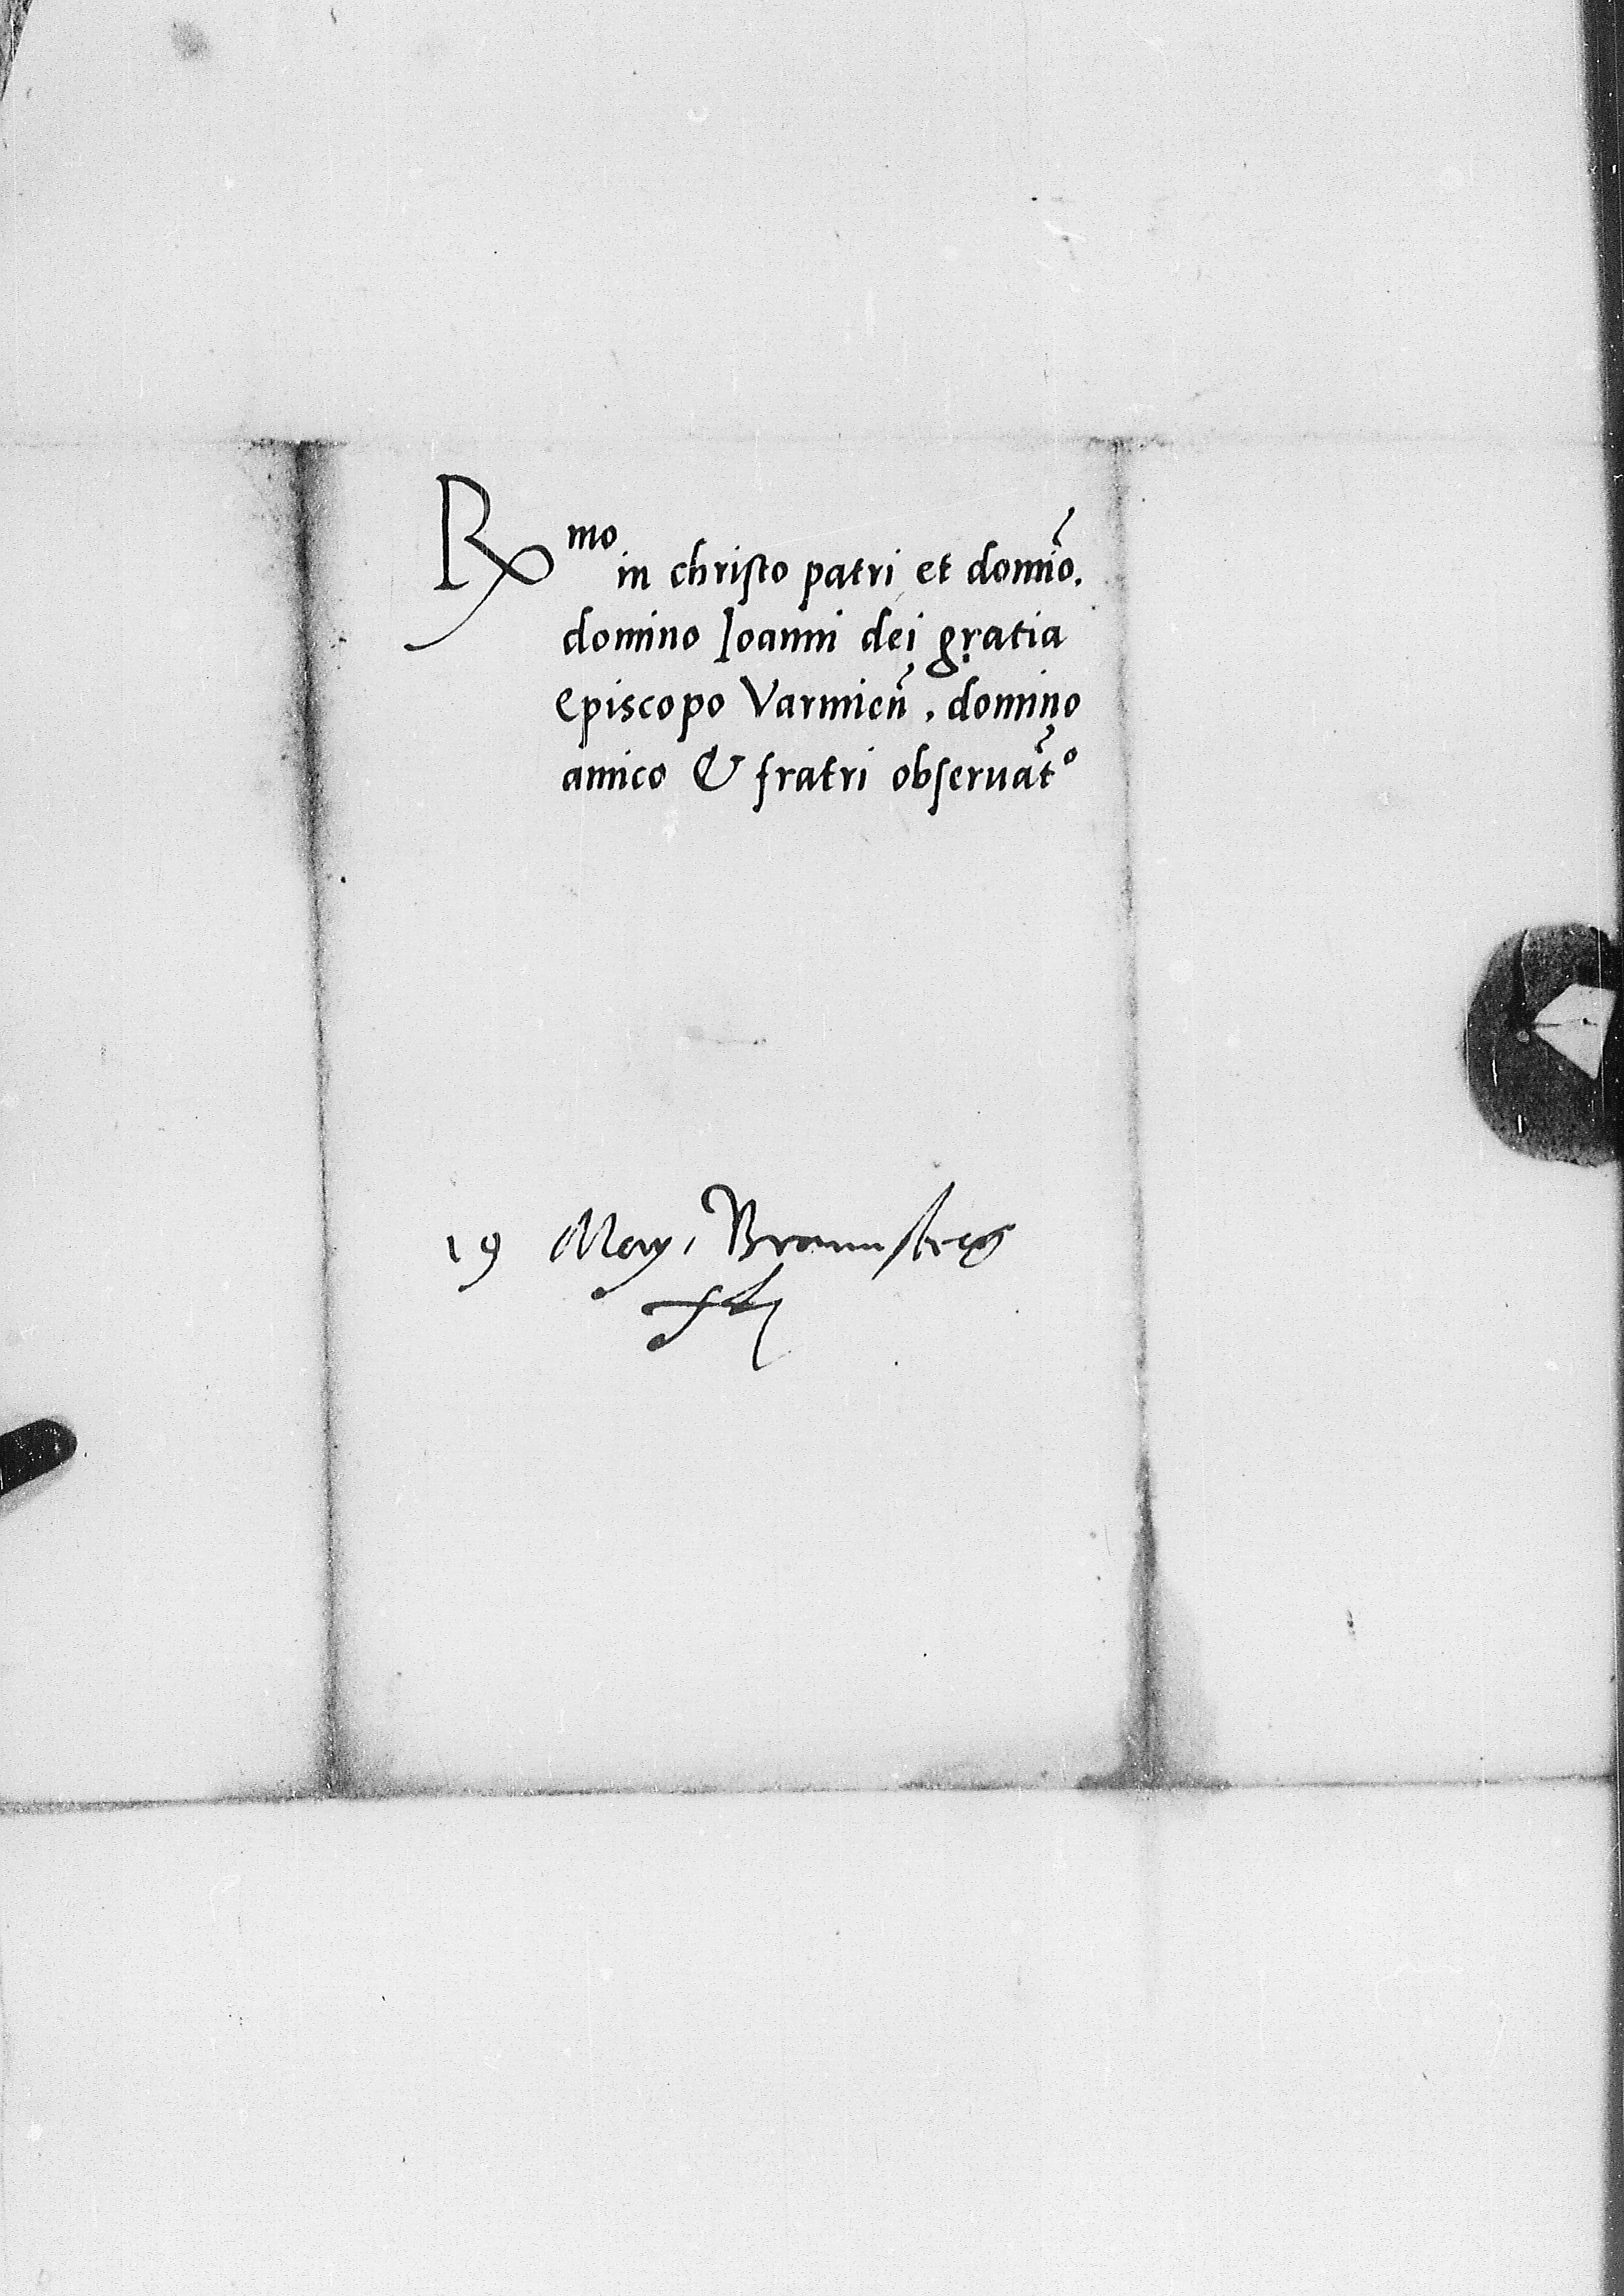 R^mo in christo patri et domi͂o.
domino Ioanni dei gratia
episcopo Varmien͂. domino
amico & fratri obseruat͂^o
19 May, Braunsberg